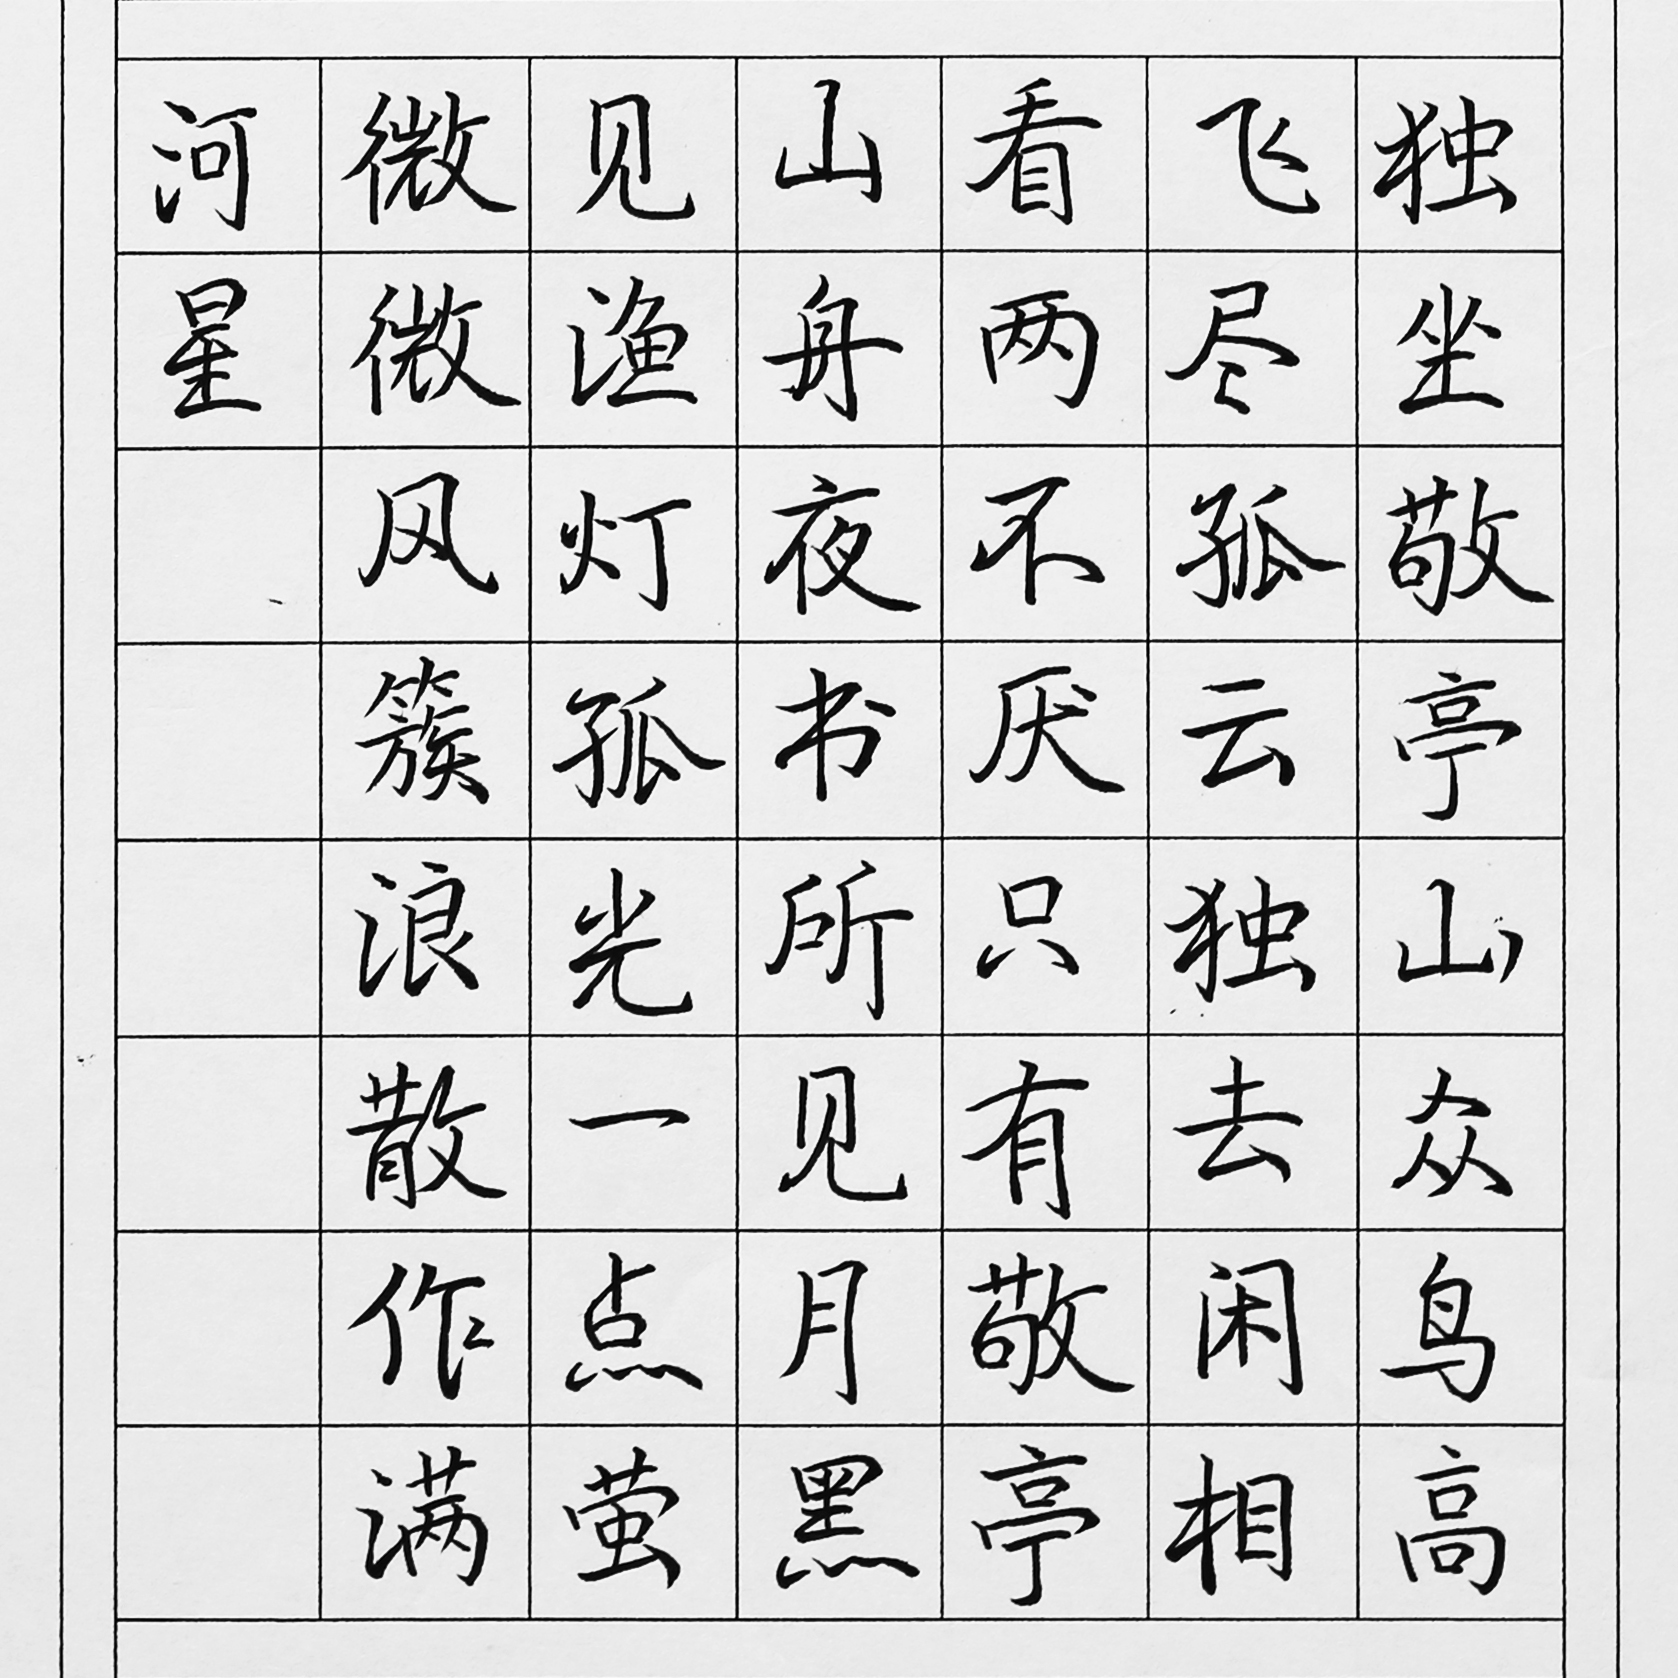 独坐敬亭山众鸟高
飞尽孤云独去闲相
看两不厌只有敬亭
山舟夜书所见月黑
见渔灯孤光一点萤
微微风簇浪散作满
河星